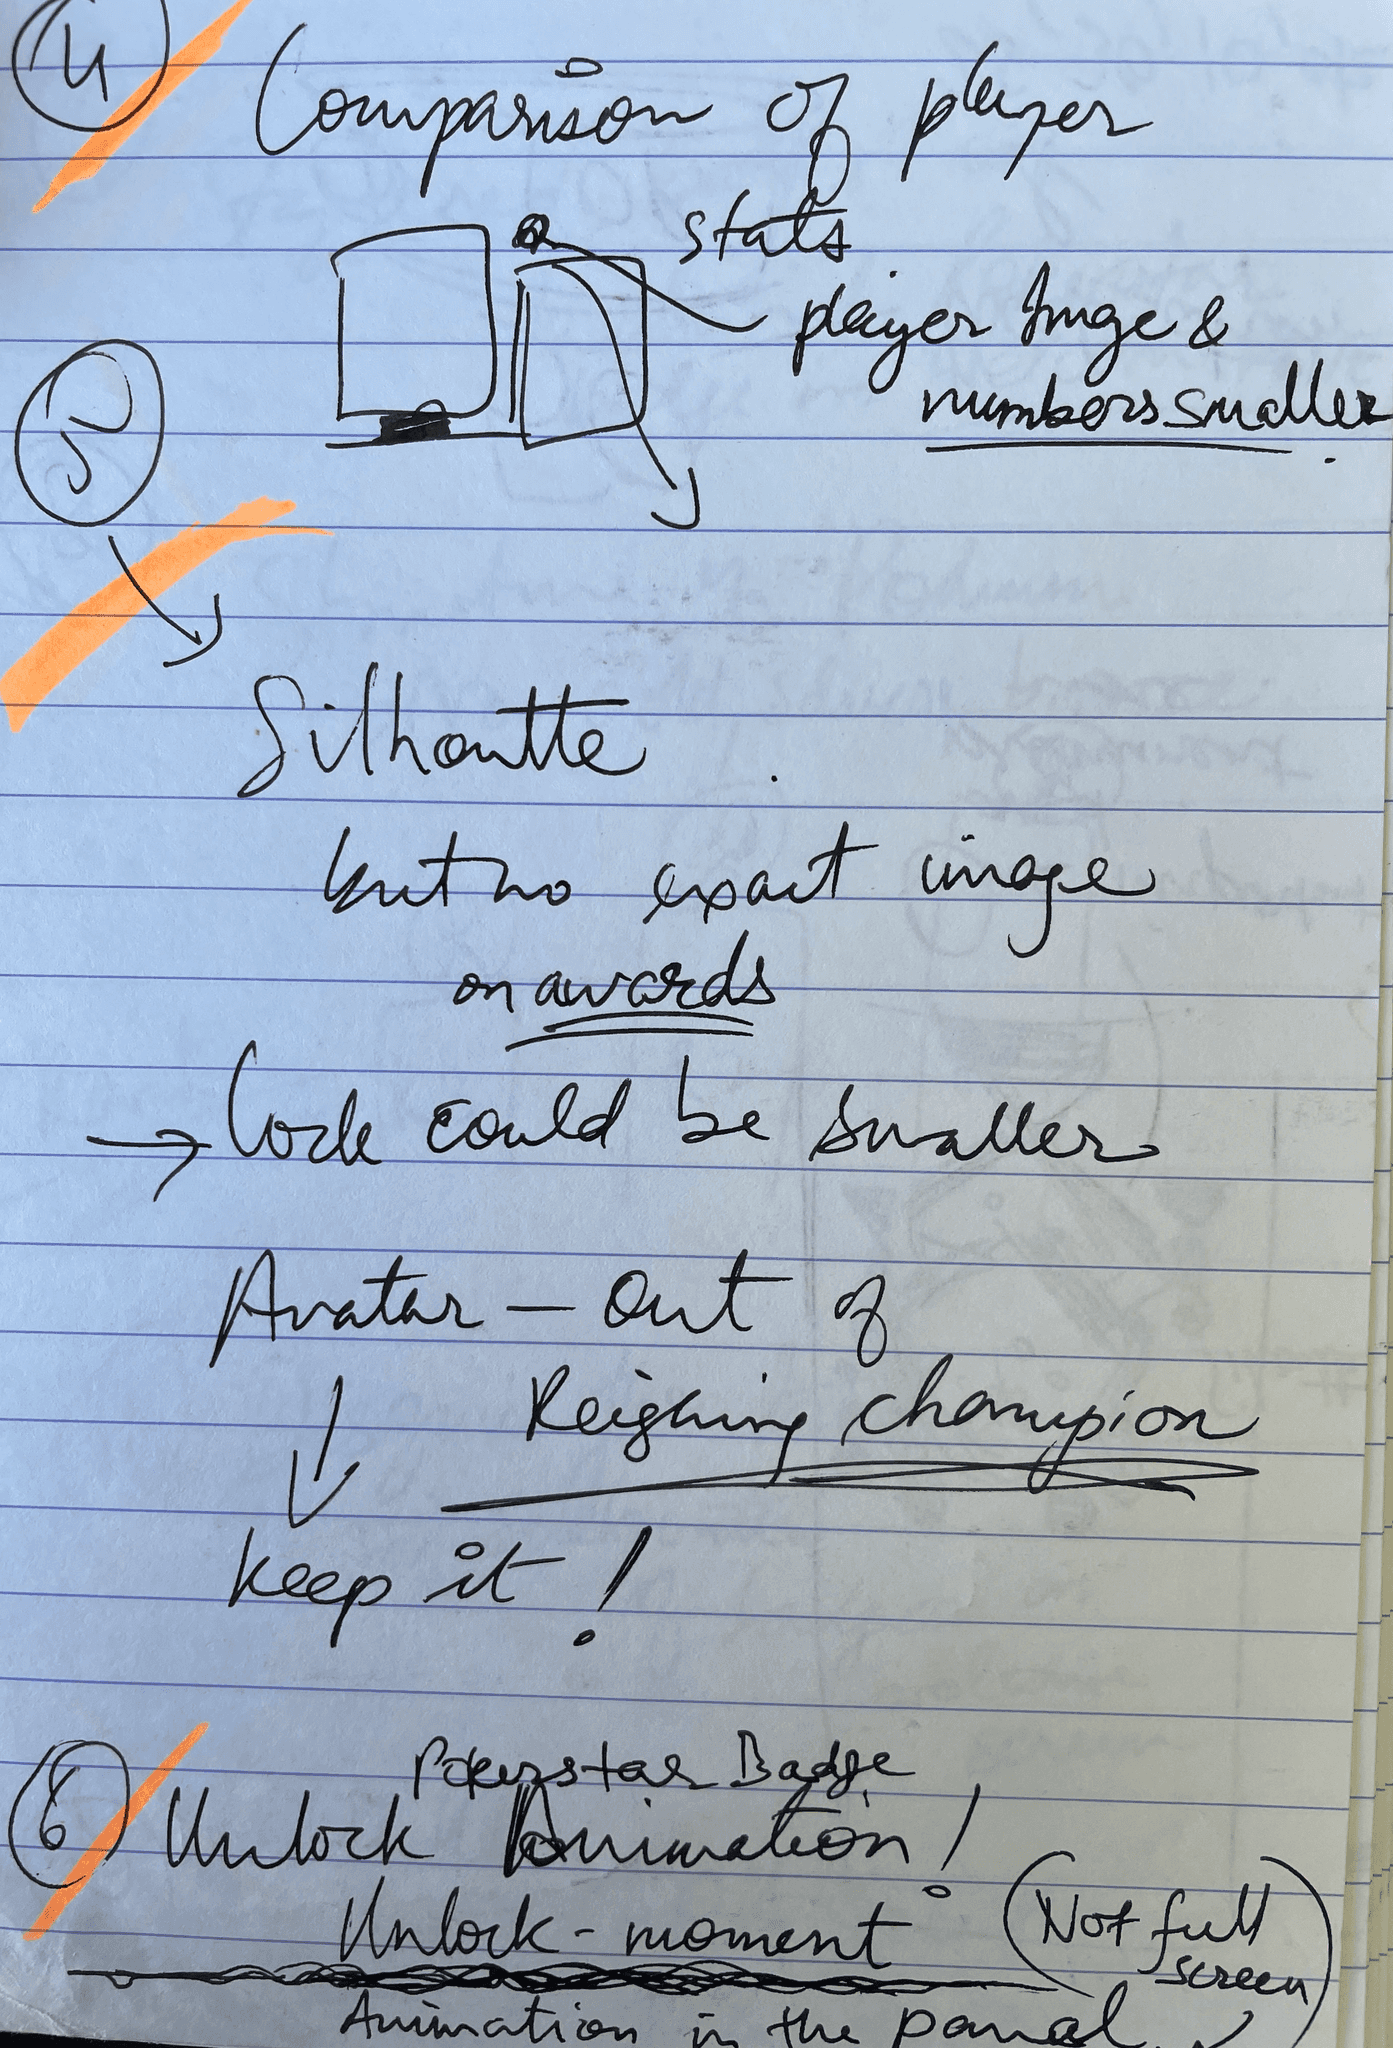 4
Comparison of player
stats
player Image &
numbers smaller
5
Silhoutte
but no exact image
on awards
→ lock could be smaller
Avatar - Out of
Reigning champion
keep it!
6
Pokerstar Badge
Unlock Animation!
Unlock - moment
(Not full
screen)
Animation in the panal